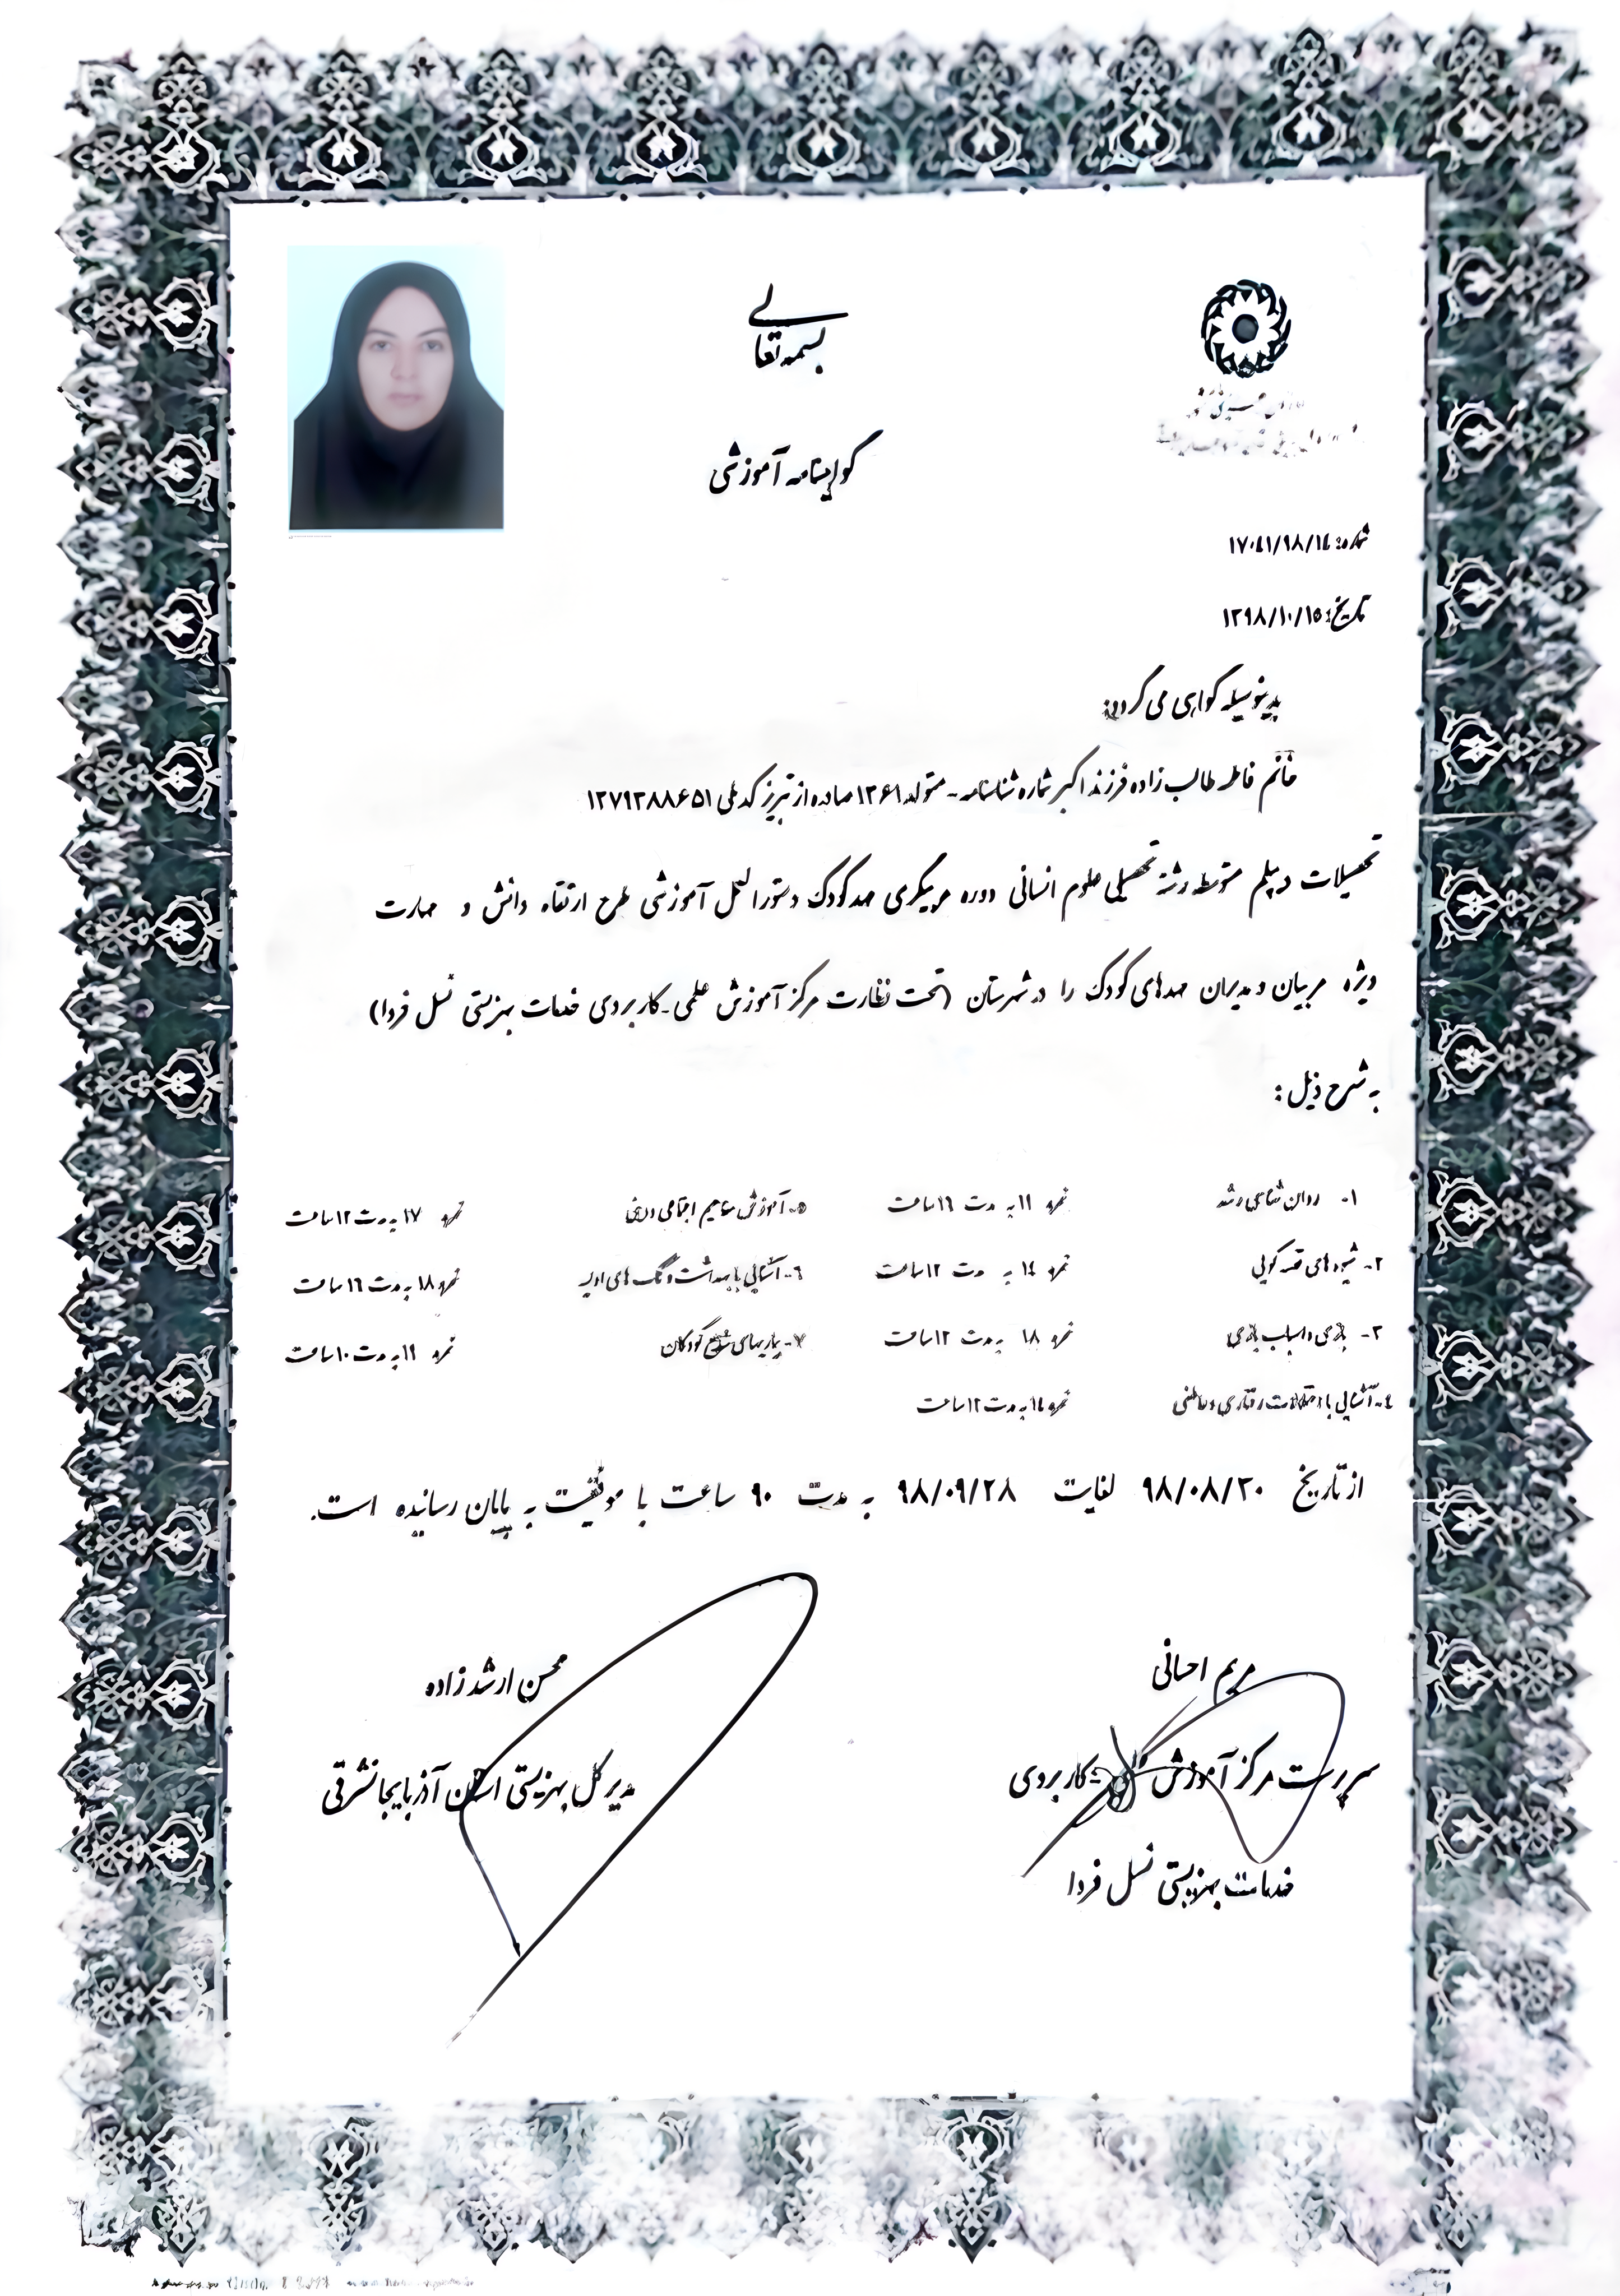 بسمه تعالی
گواهینامه آموزشی
شماره: ۱۷۰۴۱/۹۸/۱۴
تاریخ: ۱۳۹۸/۱۰/۱۵
بدینوسیله گواهی می گردد:
خانم فاطمه طالب زاده فرزند اکبر شماره شناسنامه - متولد ۱۳۶۱ صادره از تبریز کدملی ۱۳۷۹۳۸۸۶۵۱
تحصیلات دیپلم متوسطه رشته تحصیلی علوم انسانی دوره مربیگری مهدکودک دستورالعمل آموزشی طرح ارتقاء دانش و مهارت
ویژه مربیان و مدیران مهدهای کودک را در شهرستان (تحت نظارت مرکز آموزش علمی-کاربردی خدمات بهزیستی نسل فردا)
به شرح ذیل :
۱- روان شناسی رشد نمره ۱۹ به مدت ۱۶ ساعت ۵- آموزش مفاهیم اجتماعی و دینی نمره ۱۷ به مدت ۱۲ ساعت
۲- شیوه های قصه گویی نمره ۱۴ به مدت ۱۲ ساعت ۶- آشنائی با بهداشت و کمک های اولیه نمره ۱۸ به مدت ۱۶ ساعت
۳- بازی و اسباب بازی نمره ۱۸ به مدت ۱۲ ساعت ۷- بیماریهای شایع کودکان نمره ۱۹ به مدت ۱۰ ساعت
۴- آشنائی با اختلالات رفتاری و عاطفی نمره ۱۴ به مدت ۱۲ ساعت
از تاریخ ۹۸/۰۸/۲۰ لغایت ۹۸/۰۹/۲۸ به مدت ۹۰ ساعت با موفقیت به پایان رسانیده است.
مریم احسانی
سرپرست مرکز آموزش علمی-کاربردی
خدمات بهزیستی نسل فردا
محسن ارشدزاده
مدیر کل بهزیستی استان آذربایجانشرقی